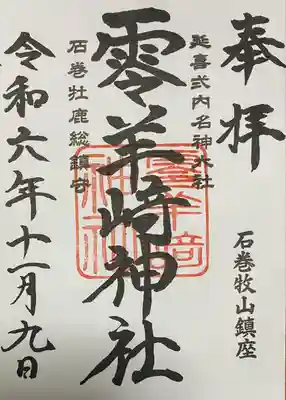 奉拝
石巻牧山鎮座
延喜式内名神大社
零羊崎神社
石巻牡鹿総鎮守
令和六年十一月九日
零羊崎神社